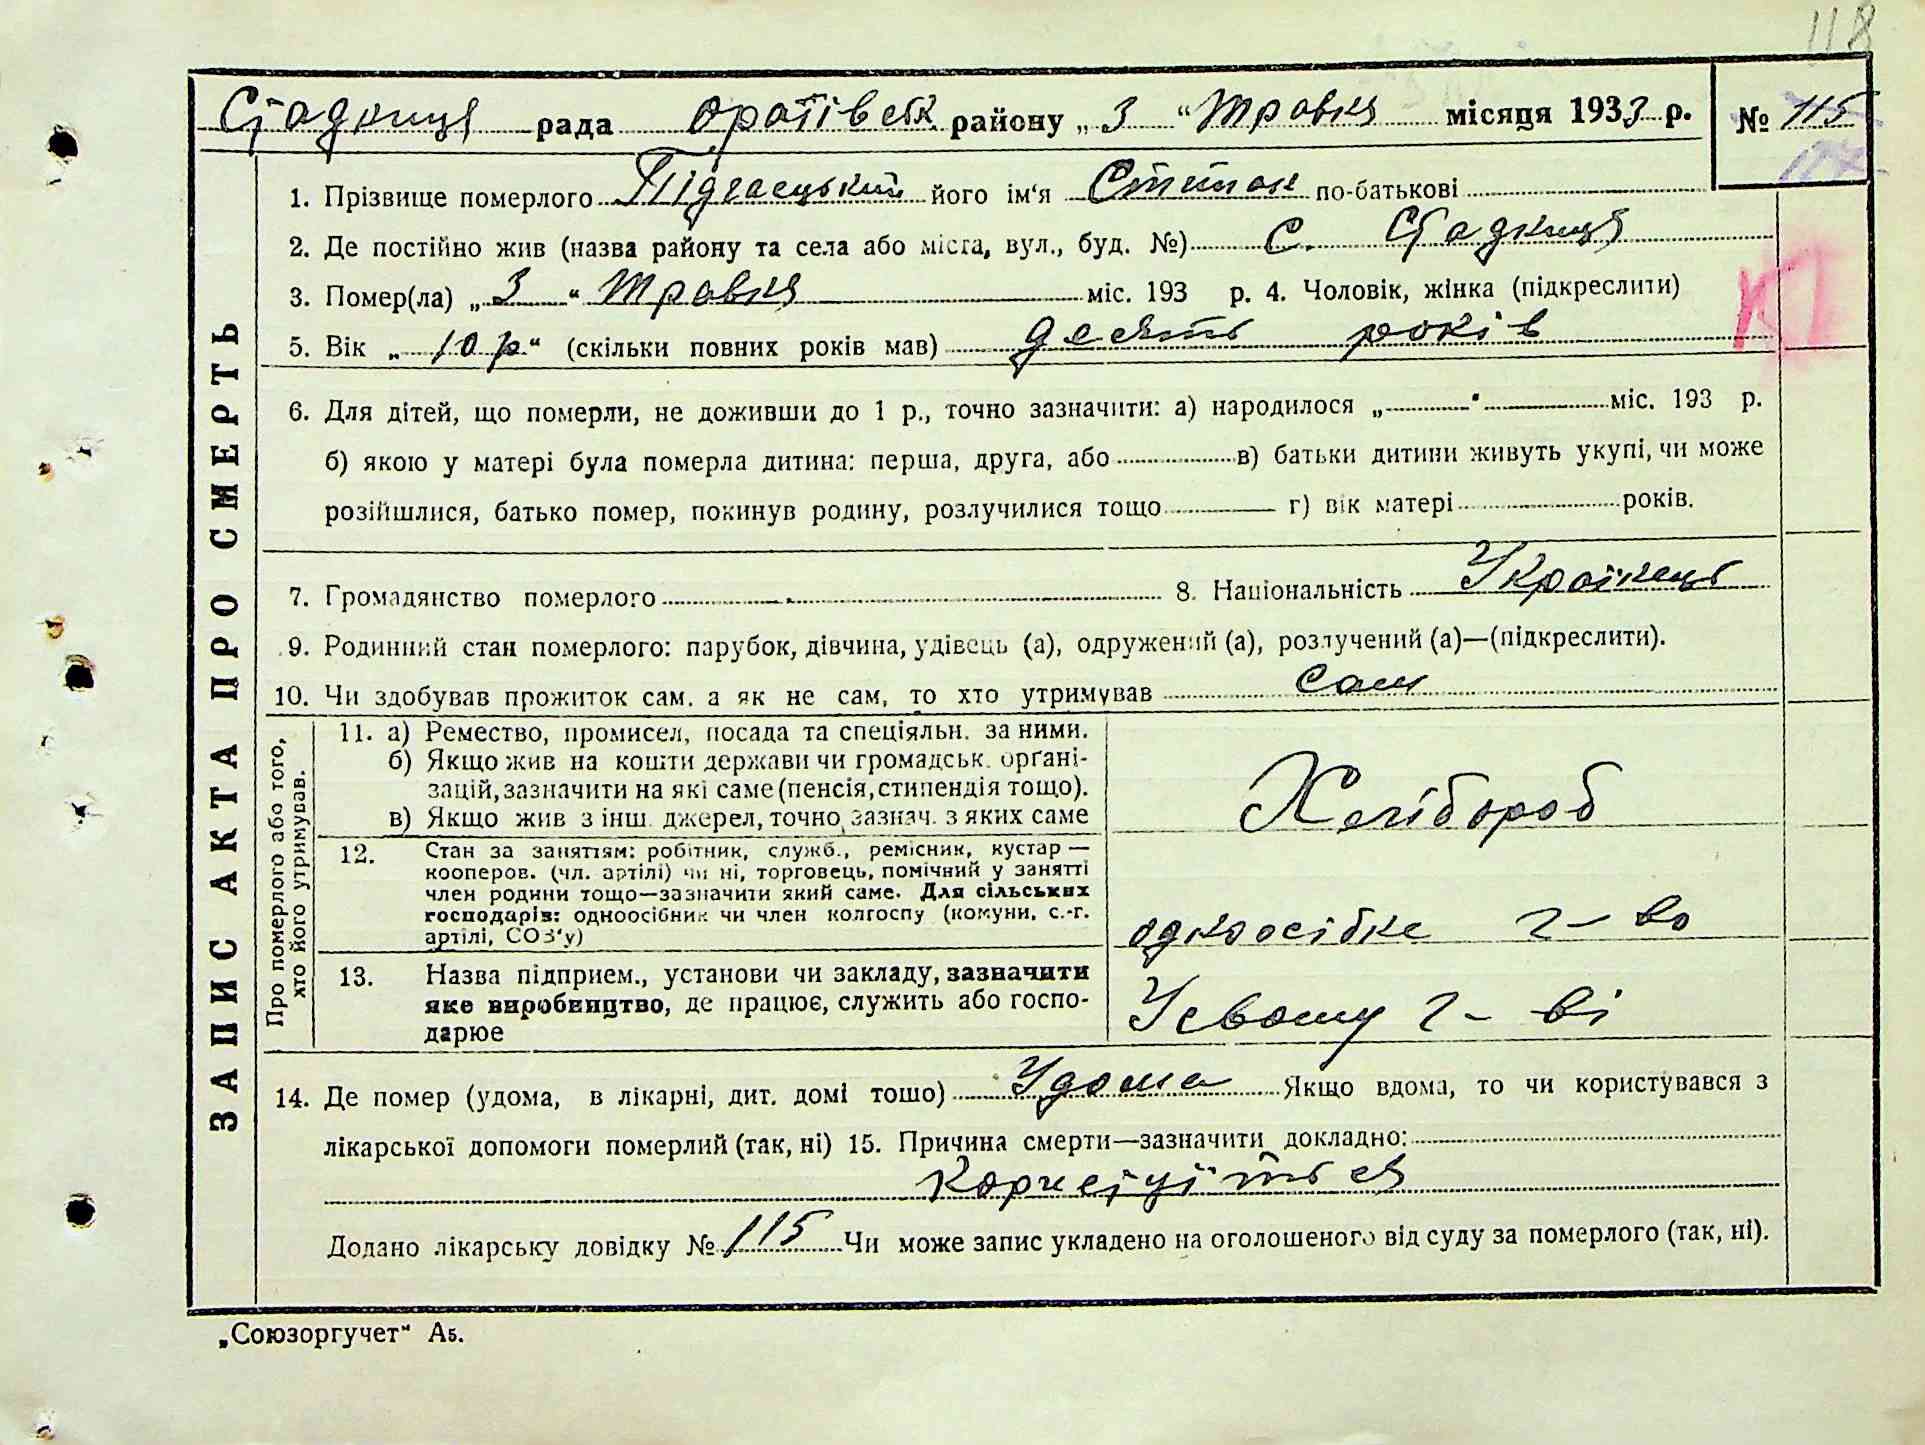 118
Стадниця рада Оратівськ. району „ 3 “ Травня місяця 1933 р. № 115
117
1. Прізвище померлого Підгаєцький його ім'я Степан по-батькові
2. Де постійно жив (назва району та села або міста, вул., буд. №) с. Стадниця
3. Помер(ла) „ 3 “ Травня міс. 193 р. 4. Чоловік, жінка (підкреслити)
5. Вік „ 10 р “ (скільки повних років мав) десять років
6. Для дітей, що померли, не доживши до 1 р., точно зазначити: а) народилося „ “ міс. 193 р.
б) якою у матері була померла дитина: перша, друга, або в) батьки дитини живуть укупі, чи може
розійшлися, батько помер, покинув родину, розлучилися тощо г) вік матері років.
7. Громадянство померлого 8. Національність Українець
9. Родинний стан померлого: парубок, дівчина, удівець (а), одружений (а), розлучений (а)—(підкреслити).
10. Чи здобував прожиток сам. а як не сам, то хто утримував сам
ЗАПИС АКТА ПРО СМЕРТЬ
Про померлого або того, хто його утримував.
11. а) Ремество, промисел, посада та спеціяльн. за ними.
б) Якщо жив на кошти держави чи громадськ. органі-
зацій, зазначити на які саме (пенсія, стипендія тощо).
в) Якщо жив з інш. джерел, точно зазнач. з яких саме
Хлібороб
12. Стан за заняттям: робітник, служб., ремісник, кустар —
кооперов. (чл. артілі) чи ні, торговець, помічний у занятті
член родини тощо—зазначити який саме. Для сільських
господарів: одноосібник чи член колгоспу (комуни, с.-г.
артілі, СОЗ'у)
одноосібне г-во
13. Назва підприєм., установи чи закладу, зазначити
яке виробництво, де працює, служить або госпо-
дарює
У свому г-ві
14. Де помер (удома, в лікарні, дит. домі тощо) Удома Якщо вдома, то чи користувався з
лікарської допомоги померлий (так, ні) 15. Причина смерти—зазначити докладно:
Додано лікарську довідку № 115 Чи може запис укладено на оголошеного від суду за померлого (так, ні).
„Союзоргучет“ А5.